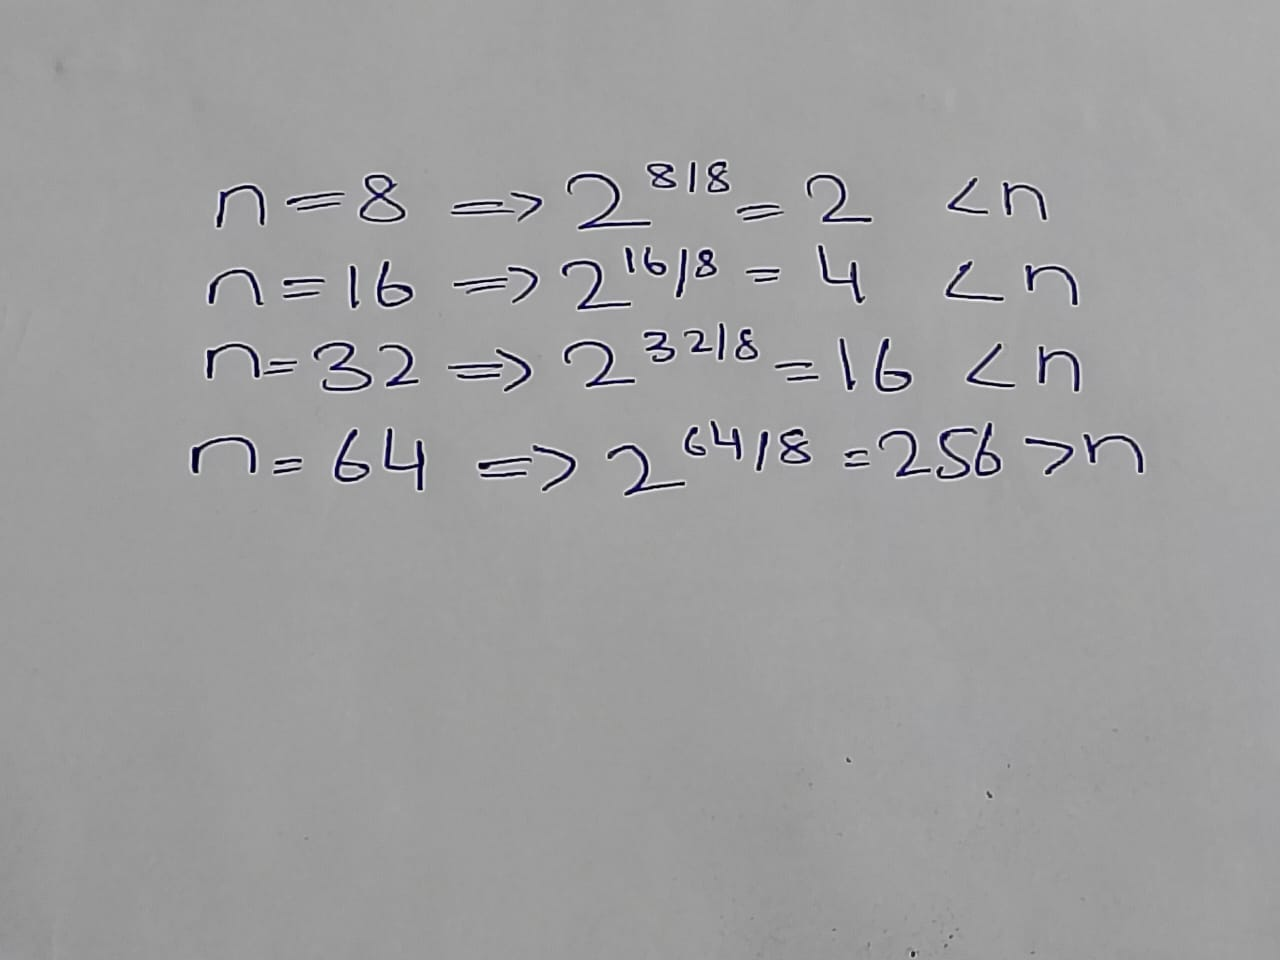 n=8 => 2^8/8 = 2 <n
n=16 => 2^16/8 = 4 <n
n=32 => 2^32/8 = 16 <n
n=64 => 2^64/8 = 256 >n